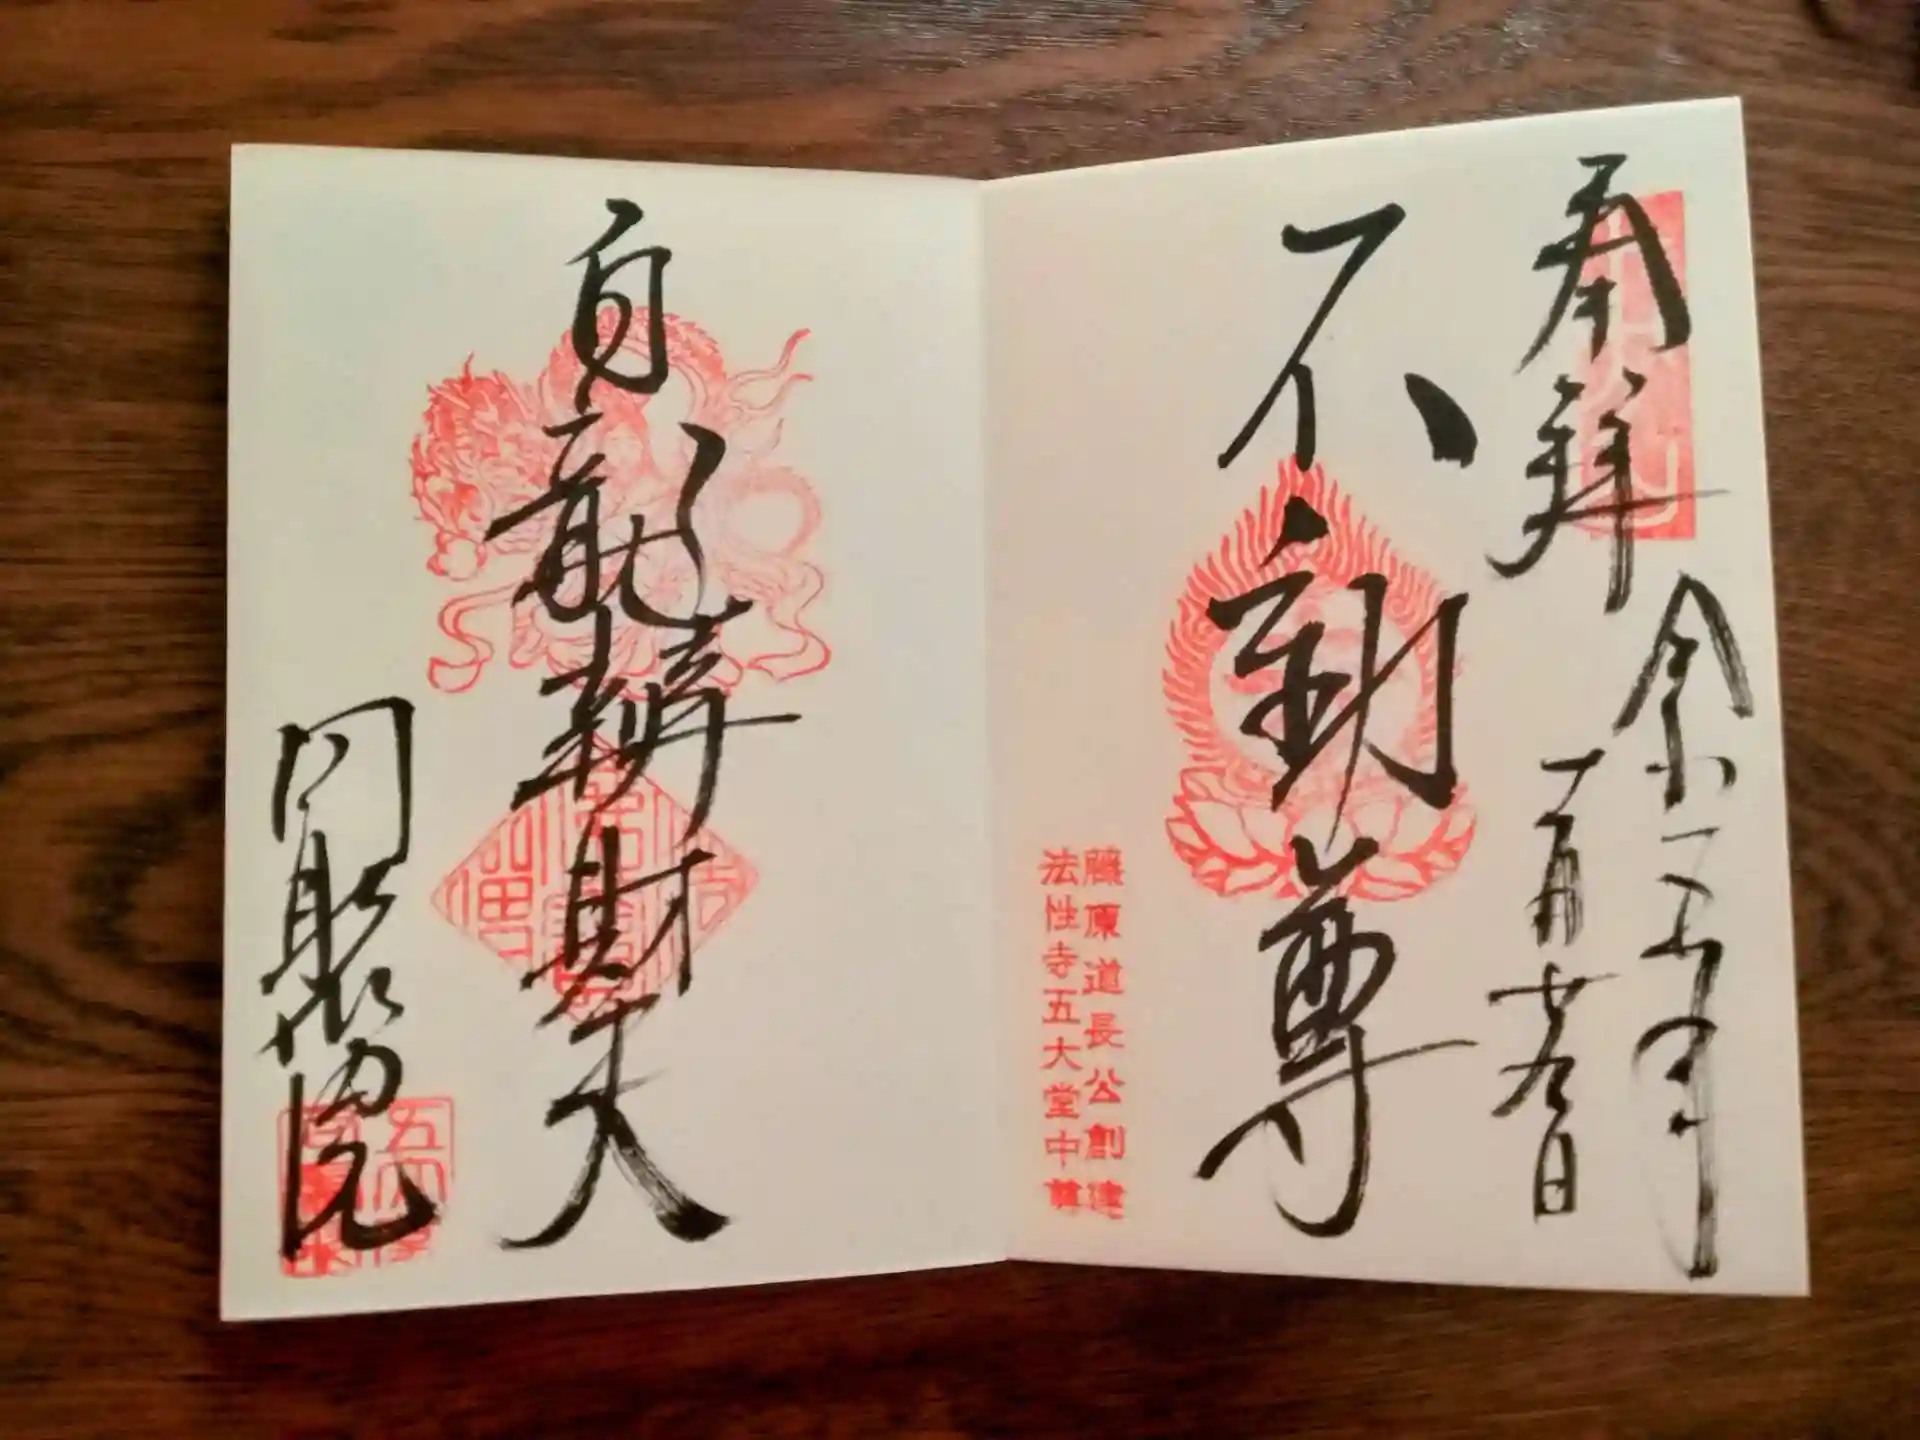 奉拝
令和五年
一月廿九日
不動尊
藤原道長公創建
法性寺五大堂中尊
白龍辨財天
同聚院